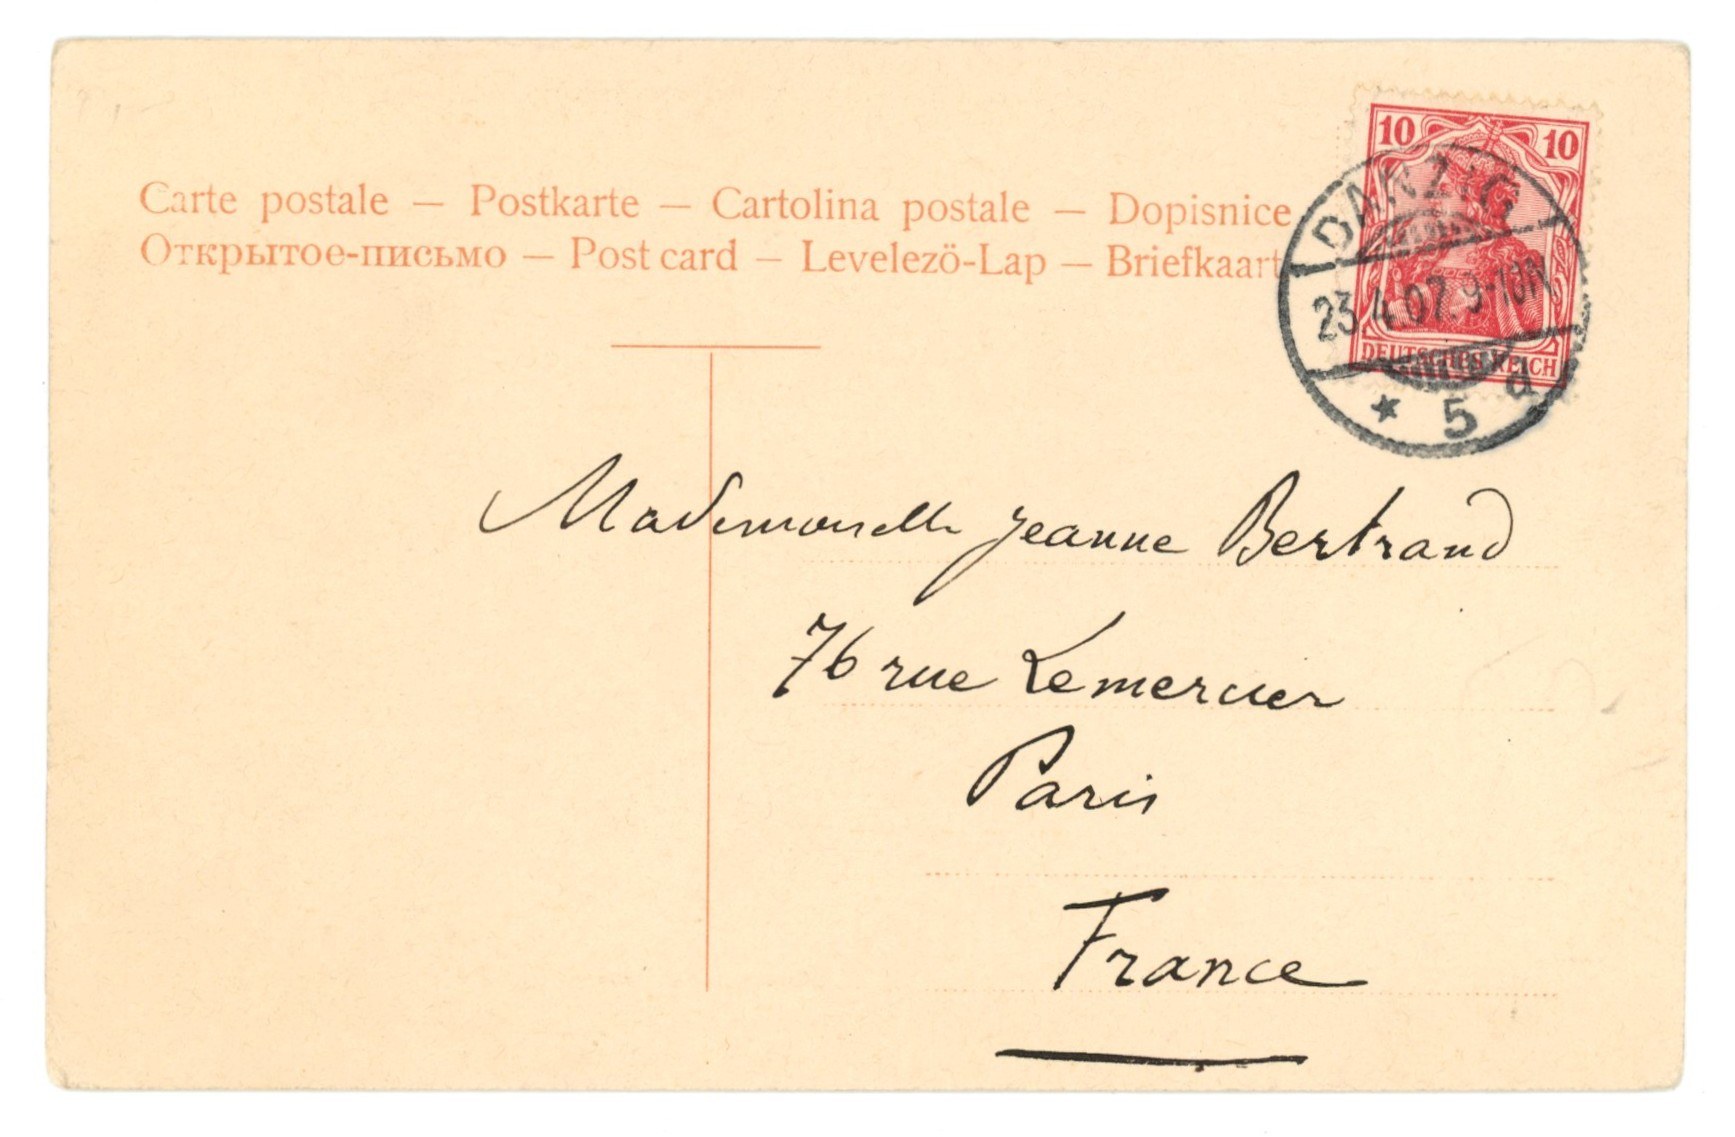 Carte postale – Postkarte – Cartolina postale – Dopisnice
Открытое-письмо – Post card – Levelezö-Lap – Briefkaart
10 10
DANZIG
23.4.07. 9-10N
DEUTSCHES REICH
* 5 d
Mademoiselle Jeanne Bertrand
76 rue Lemercier
Paris
France